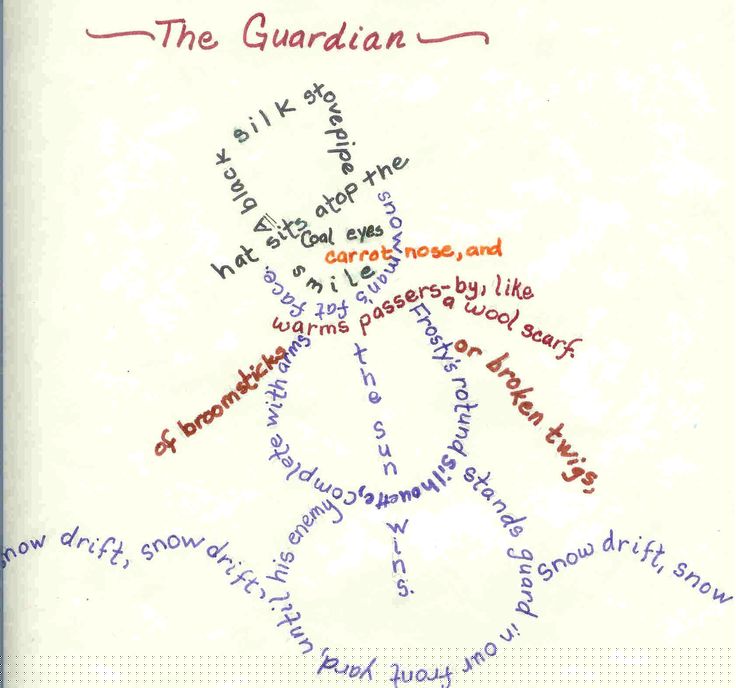 The Guardian
A black silk stovepipe
hat sits atop the
snowman's fat face.
Coal eyes
carrot nose, and
smile
warms passers-by, like
a wool scarf.
Frosty's rotund silhouette, complete with arms
of broomsticks
or broken twigs,
stands guard in our front yard, until his enemy
the sun
wins.
now drift, snow drift,
snow drift, snow